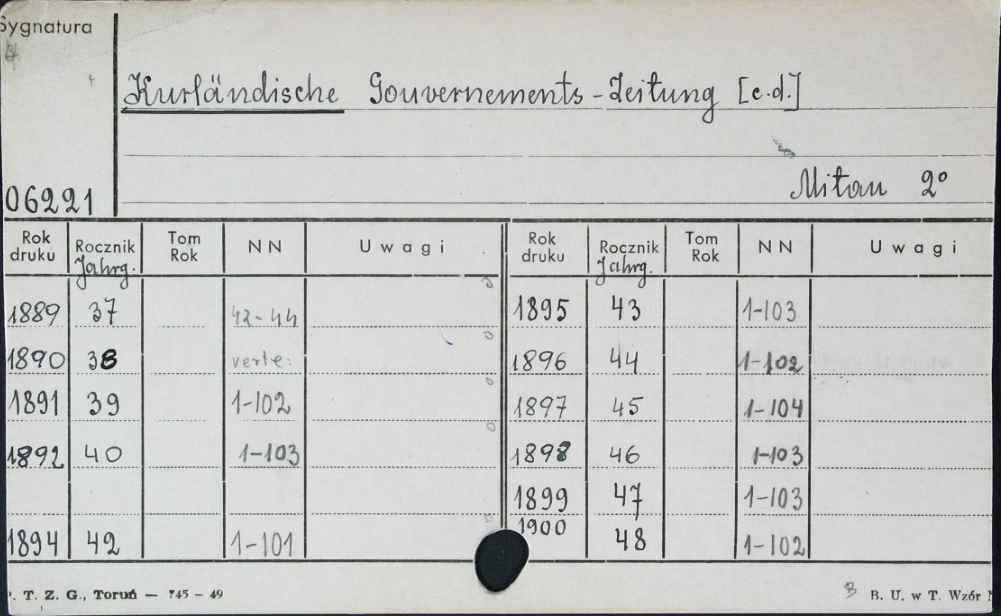 Sygnatura
Kurländische Gouvernements-Zeitung [c.d.]
Mitau 2°
06221
Rok druku Rocznik Jahrg. Tom Rok NN Uwagi
1889 37 42-44
1890 38 verte:
1891 39 1-102
1892 40 1-103
1894 42 1-101
Rok druku Rocznik Jahrg. Tom Rok NN Uwagi
1895 43 1-103
1896 44 1-102
1897 45 1-104
1898 46 1-103
1899 47 1-103
1900 48 1-102
. T. Z. G., Toruń — 745 - 49
B. U. w T. Wzór